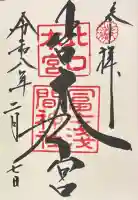 奉拝
北口本宮
冨士浅
間神社
令和八年二月七日